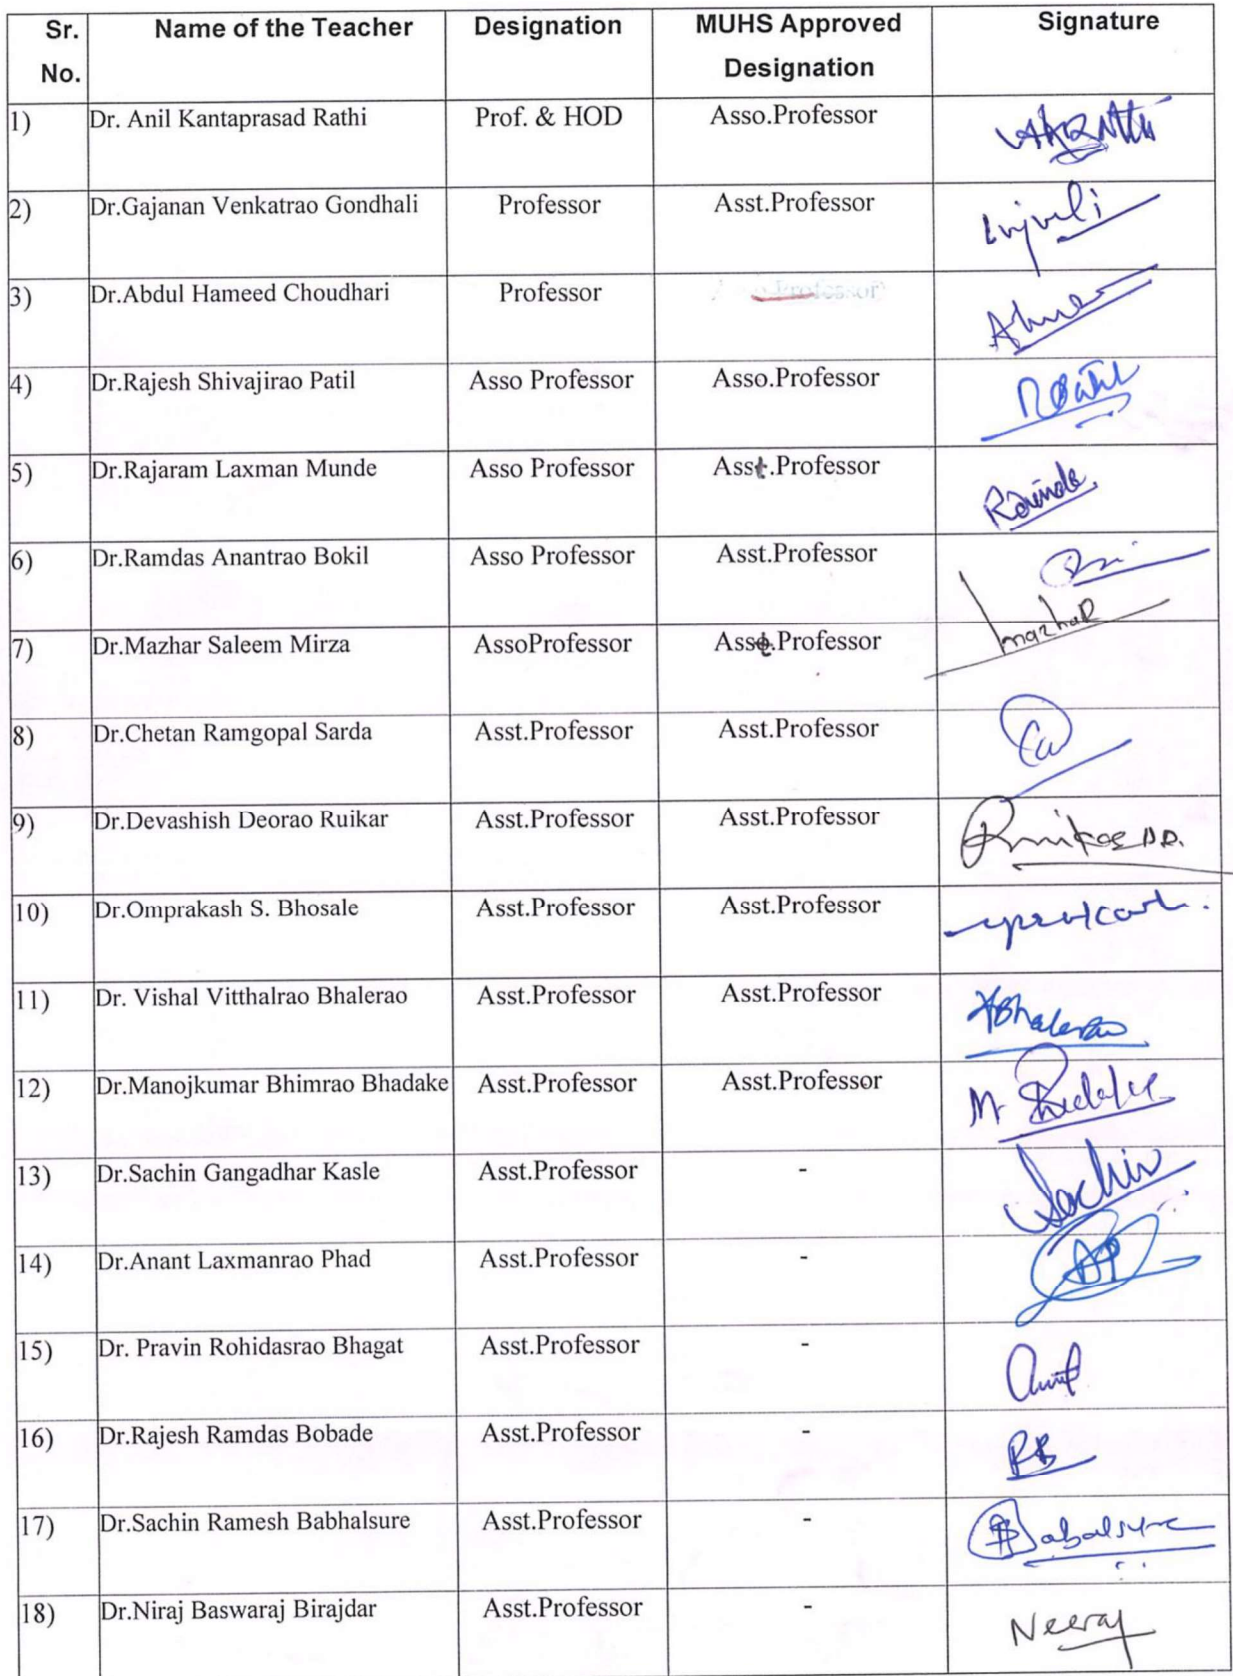 Sr. No. Name of the Teacher Designation MUHS Approved Designation Signature
1) Dr. Anil Kantaprasad Rathi Prof. & HOD Asso.Professor
2) Dr.Gajanan Venkatrao Gondhali Professor Asst.Professor
3) Dr.Abdul Hameed Choudhari Professor
4) Dr.Rajesh Shivajirao Patil Asso Professor Asso.Professor
5) Dr.Rajaram Laxman Munde Asso Professor Asst.Professor
6) Dr.Ramdas Anantrao Bokil Asso Professor Asst.Professor
7) Dr.Mazhar Saleem Mirza AssoProfessor Asst.Professor mazhar
8) Dr.Chetan Ramgopal Sarda Asst.Professor Asst.Professor
9) Dr.Devashish Deorao Ruikar Asst.Professor Asst.Professor
10) Dr.Omprakash S. Bhosale Asst.Professor Asst.Professor
11) Dr. Vishal Vitthalrao Bhalerao Asst.Professor Asst.Professor
12) Dr.Manojkumar Bhimrao Bhadake Asst.Professor Asst.Professor
13) Dr.Sachin Gangadhar Kasle Asst.Professor - Sachin
14) Dr.Anant Laxmanrao Phad Asst.Professor -
15) Dr. Pravin Rohidasrao Bhagat Asst.Professor -
16) Dr.Rajesh Ramdas Bobade Asst.Professor - RB
17) Dr.Sachin Ramesh Babhalsure Asst.Professor -
18) Dr.Niraj Baswaraj Birajdar Asst.Professor - Neeraj